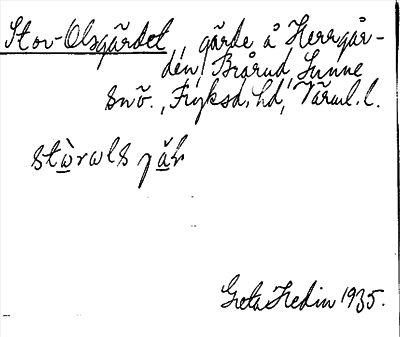 Stor-Olsgärdet, gärde å Herrgår-
den, Brårud, Sunne
snö., Fryksd. hd, Värml. l.
stẁrwls
Greta Hedin 1935.